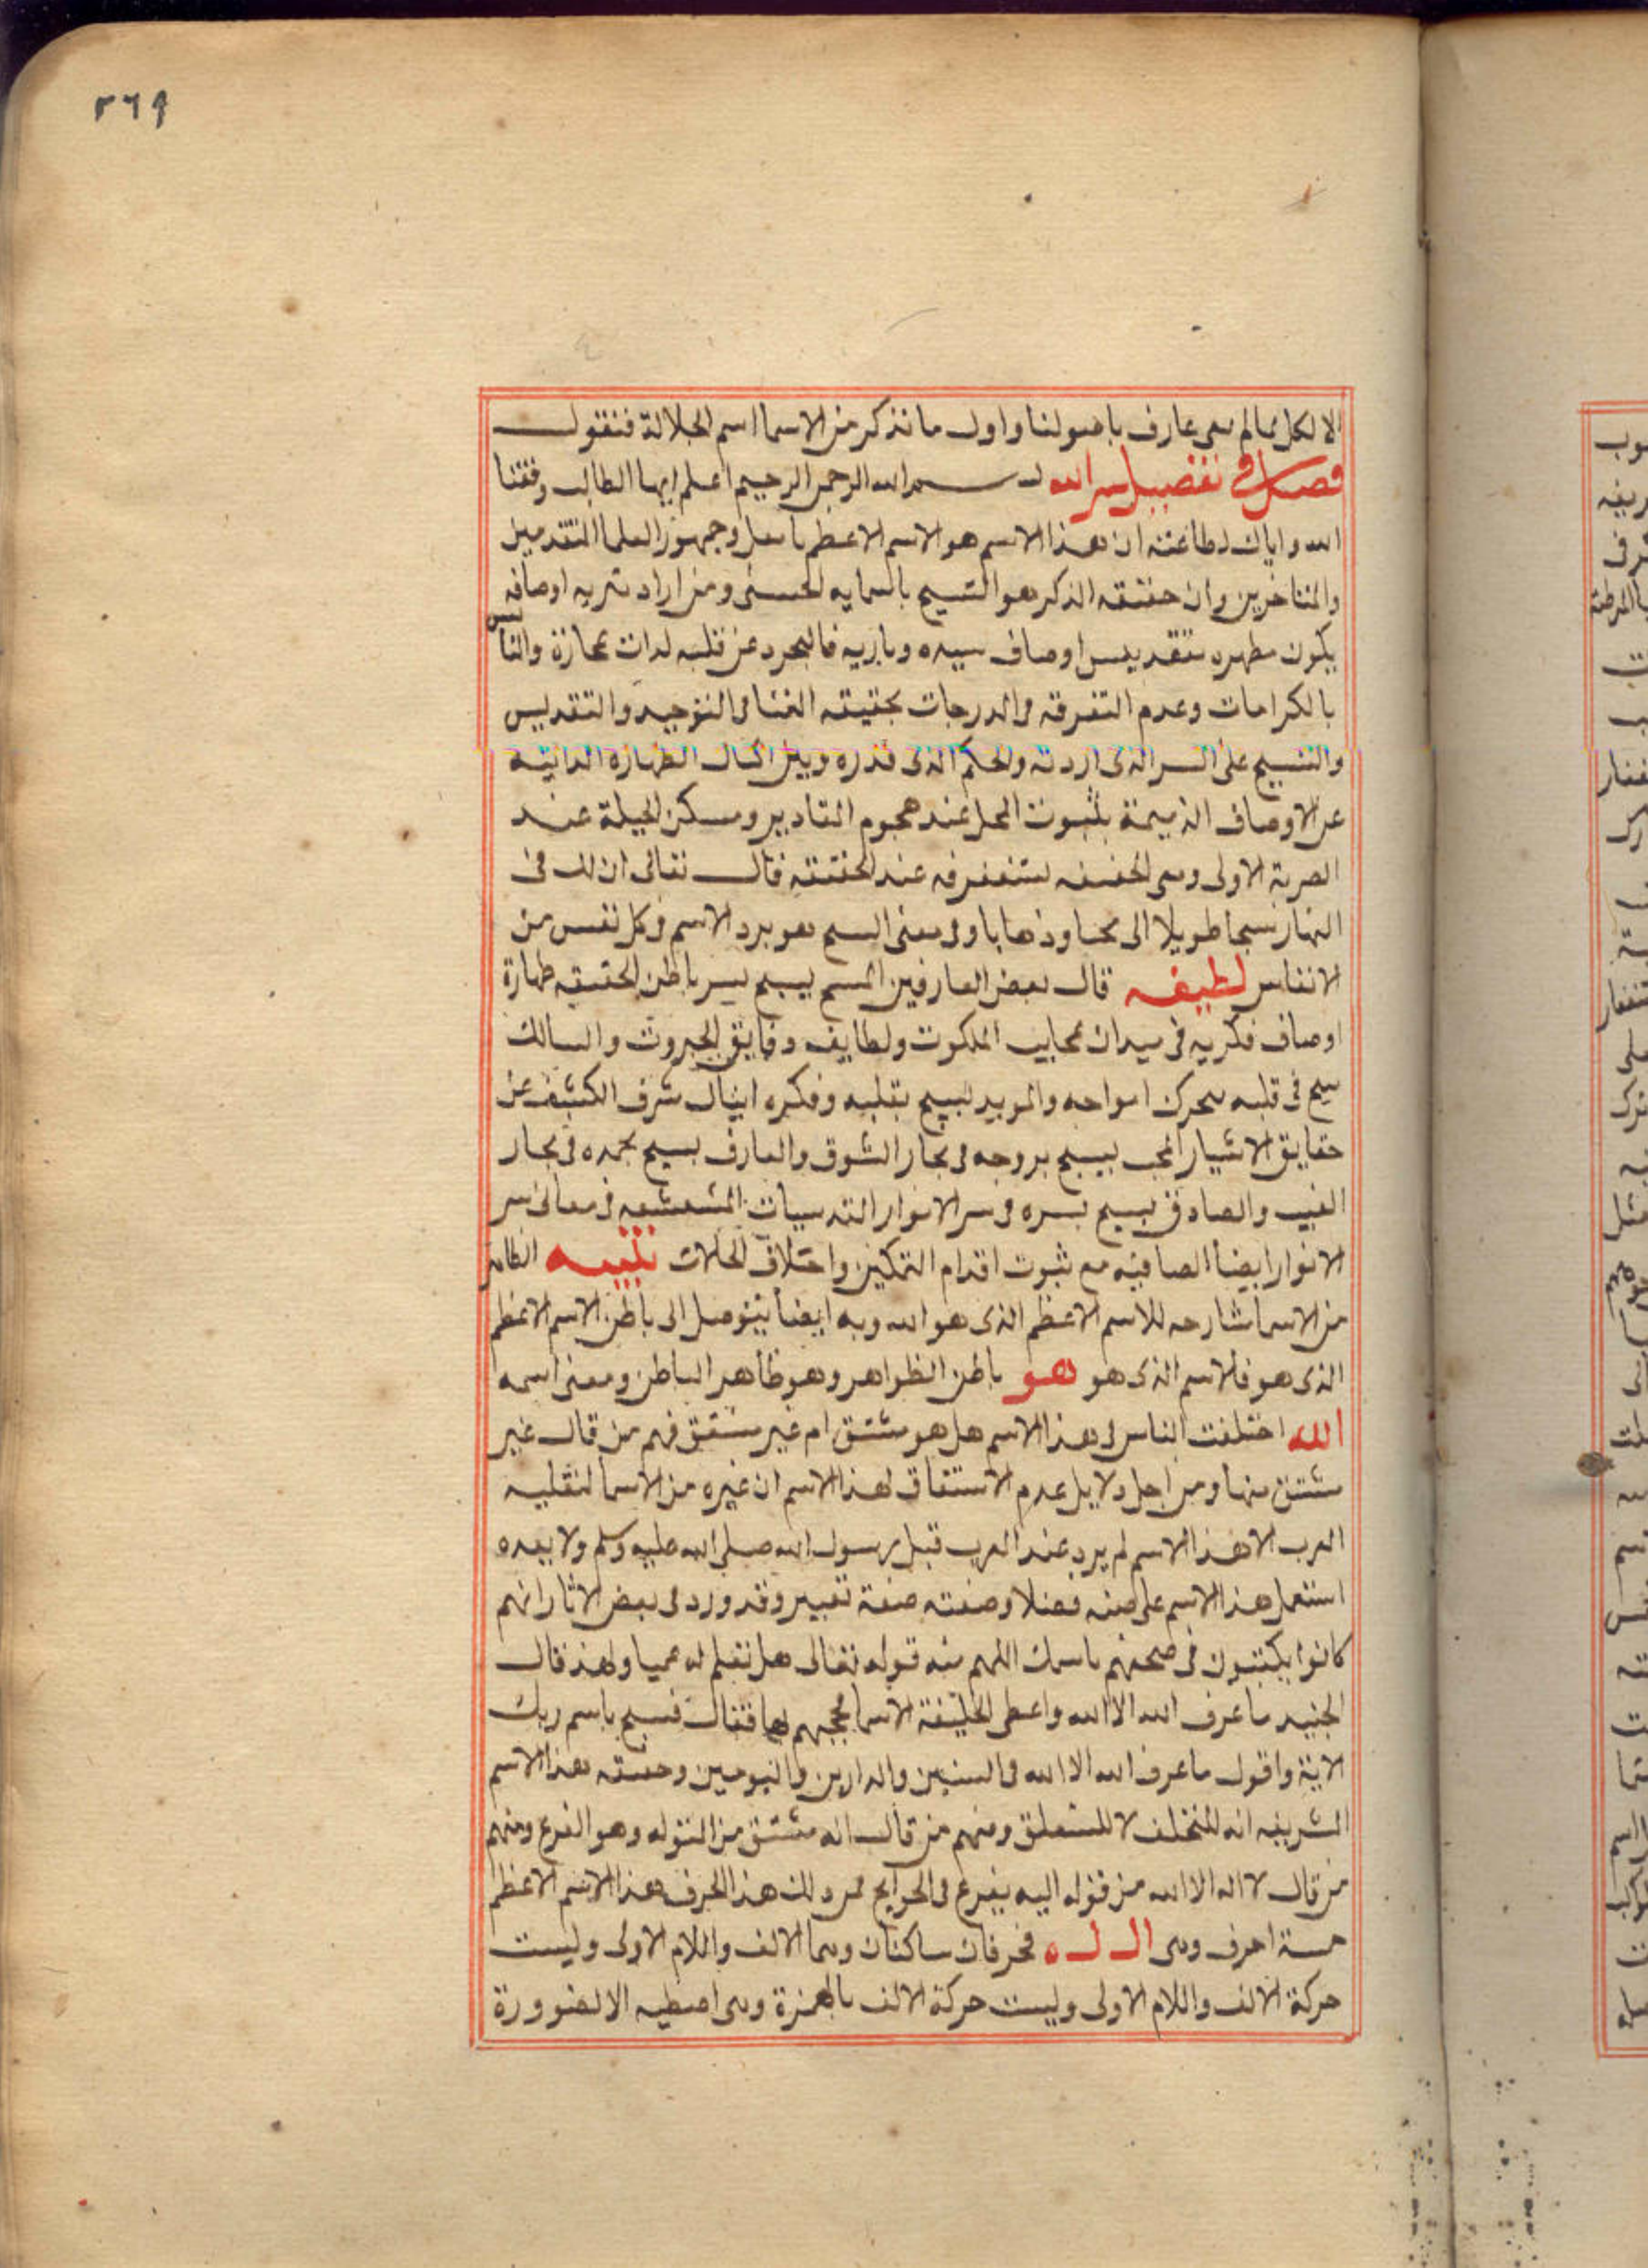 ٢٦٩
الا لكل عالم عارف باصولنا واول ما نذكر من الاسما اسم الجلالة فنقول
فصل في تفضيل سر الله بسم الله الرحمن الرحيم اعلم ايها الطالب وفقنا
الله واياك لطاعته ان هذا الاسم هو الاسم الاعظم وجمهور العلما المتقدمين
والمتاخرين وان حقيقه الذكر هو التسبيح باسمايه الحسنى ومن اراد اوصافه
يكون مطهره بتقديس اوصاف سيده وباريه عن قلبه
بالكرامات وعدم التفرقه في الدرجات بحقيقه الفنا في التوحيد والتقديس
والتسبيح على السر الذى اردته والحكم الذى قدره الطهارة الداتيه
عن الاوصاف الذميمة بثبوت المحل عند هجوم المقادير ومسكن الحيلة عند
الاولى عند الحقيقه قال تعالى ان لك فى
النهار سبحا طويلا الى وذهابا وفى معنى السبح هو برد الاسم فى كل نفس من
الانفاس لطيفه قال بعض العارفين المسبح يسبح بسر باطن الحقيقه طهارة
اوصاف فكريه فى ميدان عجايب الملكوت ولطايف دقايق الجبروت والسالك
سبح فى قلبه امواجه والمريد يسبح بقلبه وفكره شرف الكشف عن
حقايق الاشيا المحب يسبح بروحه فى بحار الشوق والعارف يسبح فى بحار
الغيب والصادق يسبح بسره فى سر الانوار القدسيات المشعشعه فى معانى سر
الانوار ايضا الصافيه مع ثبوت اقدام التمكين واختلاف الحالات تنبيه الظاهر
من الاسما شارحه للاسم الاعظم الذى هو الله وبه ايضا يتوصل الى باطن الاسم الاعظم
الذى هو فالاسم الذى هو هو باطن الظواهر وهو ظاهر الباطن ومعنى اسمه
الله اختلفت الناس فى هذا الاسم هل هو مشتق ام غير مشتق فمنهم من قال غير
مشتق ومن اجل دلايل عدم الاشتقاق لهذا الاسم ان غيره من الاسما
العرب الا هذا الاسم لم يرد عند العرب قبل رسول الله صلى الله عليه وسلم ولا بعده
استعمل هذا الاسم على صفه وقد ورد فى بعض الاثار انهم
كانوا يكتبون فى صحفهم باسمك اللهم قوله تعالى هل تعلم له سميا ولهذا قال
الجنيد ما عرف الله الا الله واعطى الخليقة الاسما بها فقال فسبح باسم ربك
الاية واقول ما عرف الله الا الله فى والدارين واليومين هذا الاسم
الشريف انه للتخلف لا للتعلق ومنهم من قال انه مشتق من التوله وهو الفزع ومنهم
من قال لا اله الا الله من قوله اليه يفزع فى الحوايج هذا الاسم الاعظم
خمسة احرف وهى ا ل ل ه فحرفان ساكنان وهما الالف واللام الاولى وليست
حركة الالف واللام الاولى وليست حركة الالف بالهمزة وهى الا